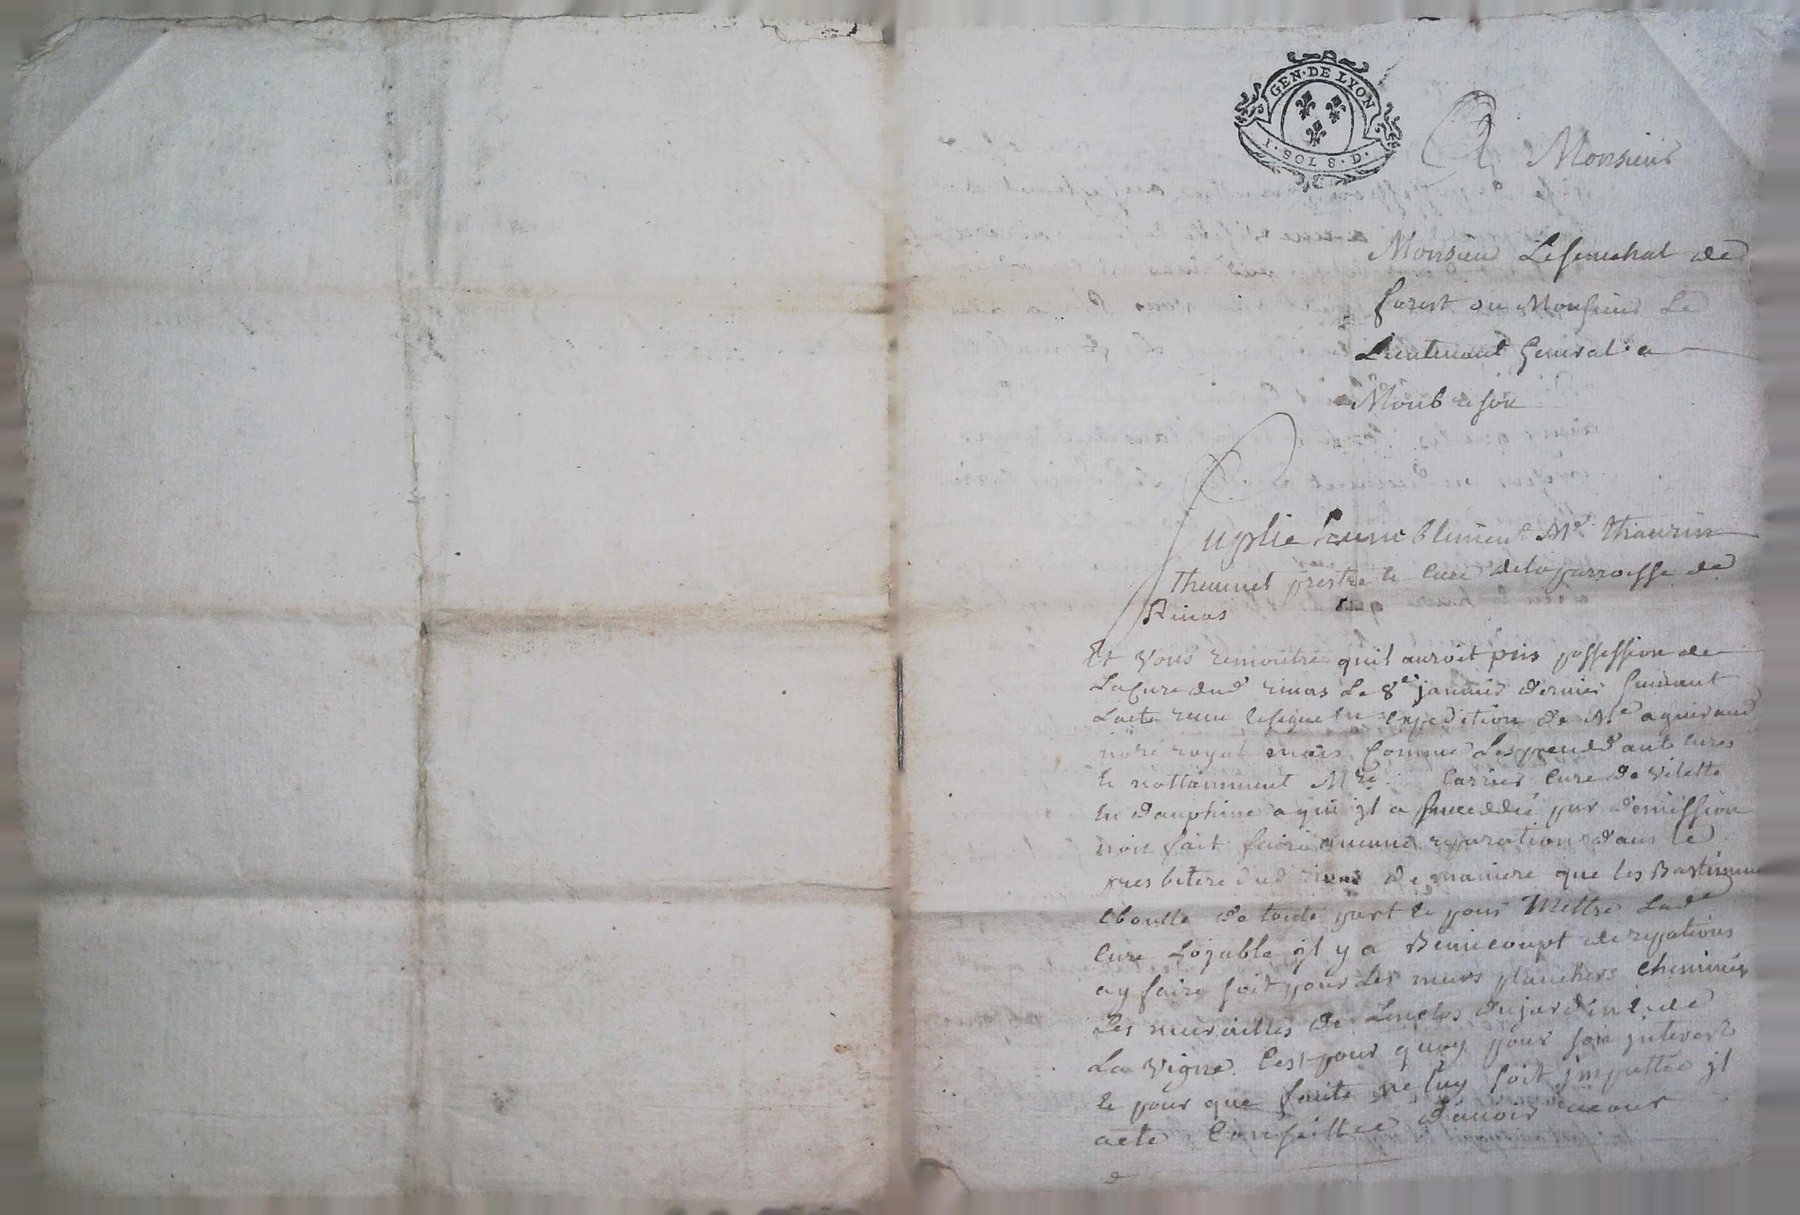 GEN·DE LYON
I·SOL 8·D·
A Monsieur
Monsieur Le senechal de
forest ou Monsieur Le
Lieutenant general a
Monbrison
Suplie humblement Mre
prestre et Curé de la parroisse de
Rivas
Et vous remontre quil auroit pris possession de
La Cure dud rivas Le 8e janvier dernier suivant
Lacte receu et signé en expedition de Me aguiraud
nore royal mais comme Les cures
et nottamment Mre carrier Cure de vilette
en dauphine a qui jl a succeddé par demission
non fait faire aucune reparation dans le
presbitere dud rivas de maniere que les Bastimens
eboulle de toute part et pour Mettre Lade
Cure Logable jl y a Beaucoupt de repations
a y faire soit pour Les murs planchers cheminée
Les murailles de Lenclos du jardin et de
La vigne. C'est pour quoy pour son jnterest
et pour que faute ne luy soit jmputtée jl
a ete Conseillée d'avoir recour